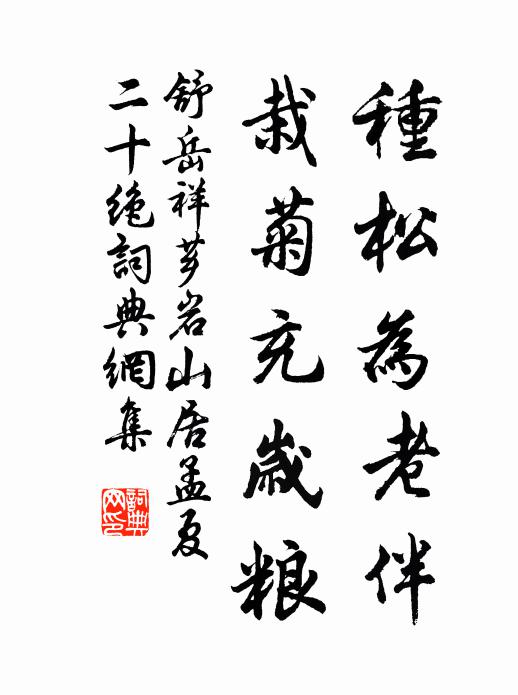 種松為老伴
栽菊充歲粮
舒岳祥 芗岩山居孟夏
二十绝 詞典網集
詞典网印